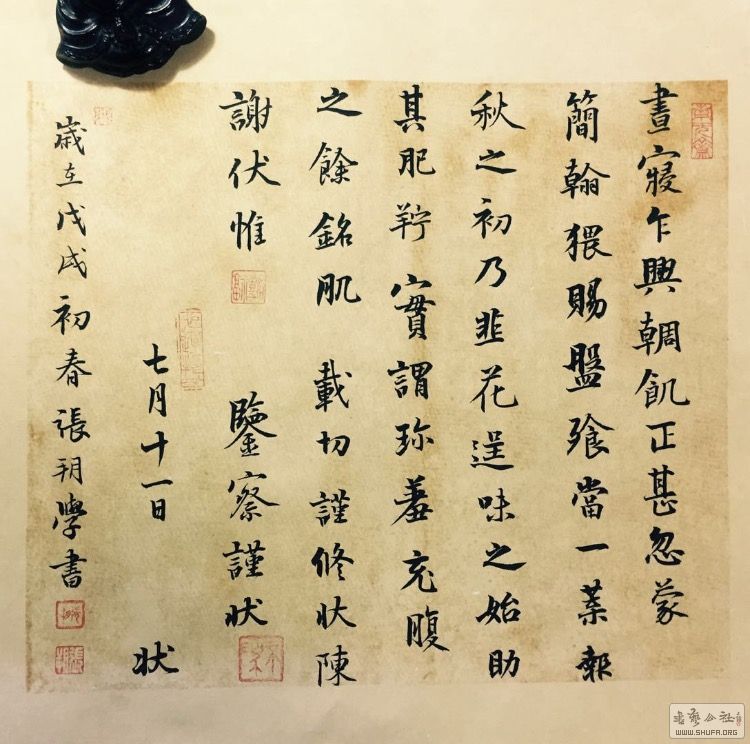 晝寢乍興輖飢正甚忽蒙
簡翰猥賜盤飧當一葉報
秋之初乃韭花逞味之始助
其肥羜實謂珍羞充腹
之餘銘肌載切謹修狀陳
謝伏惟 鑒察謹狀
七月十一日 狀
歲在戊戌初春張玥學書
書藝公社
WWW.SHUFA.ORG